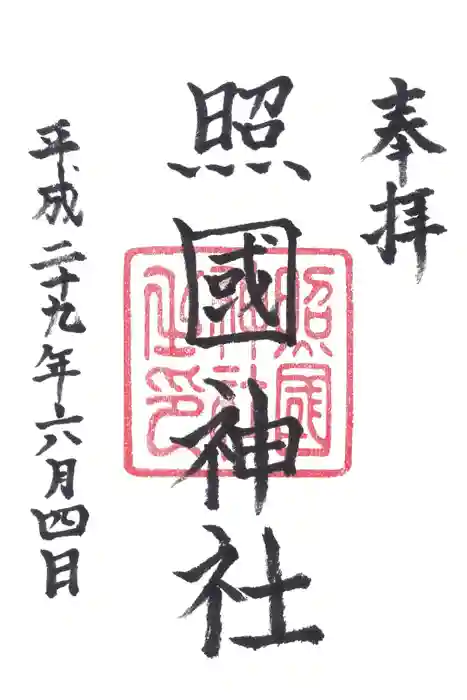 奉拝
照國神社
照国神社之印
平成二十九年六月四日